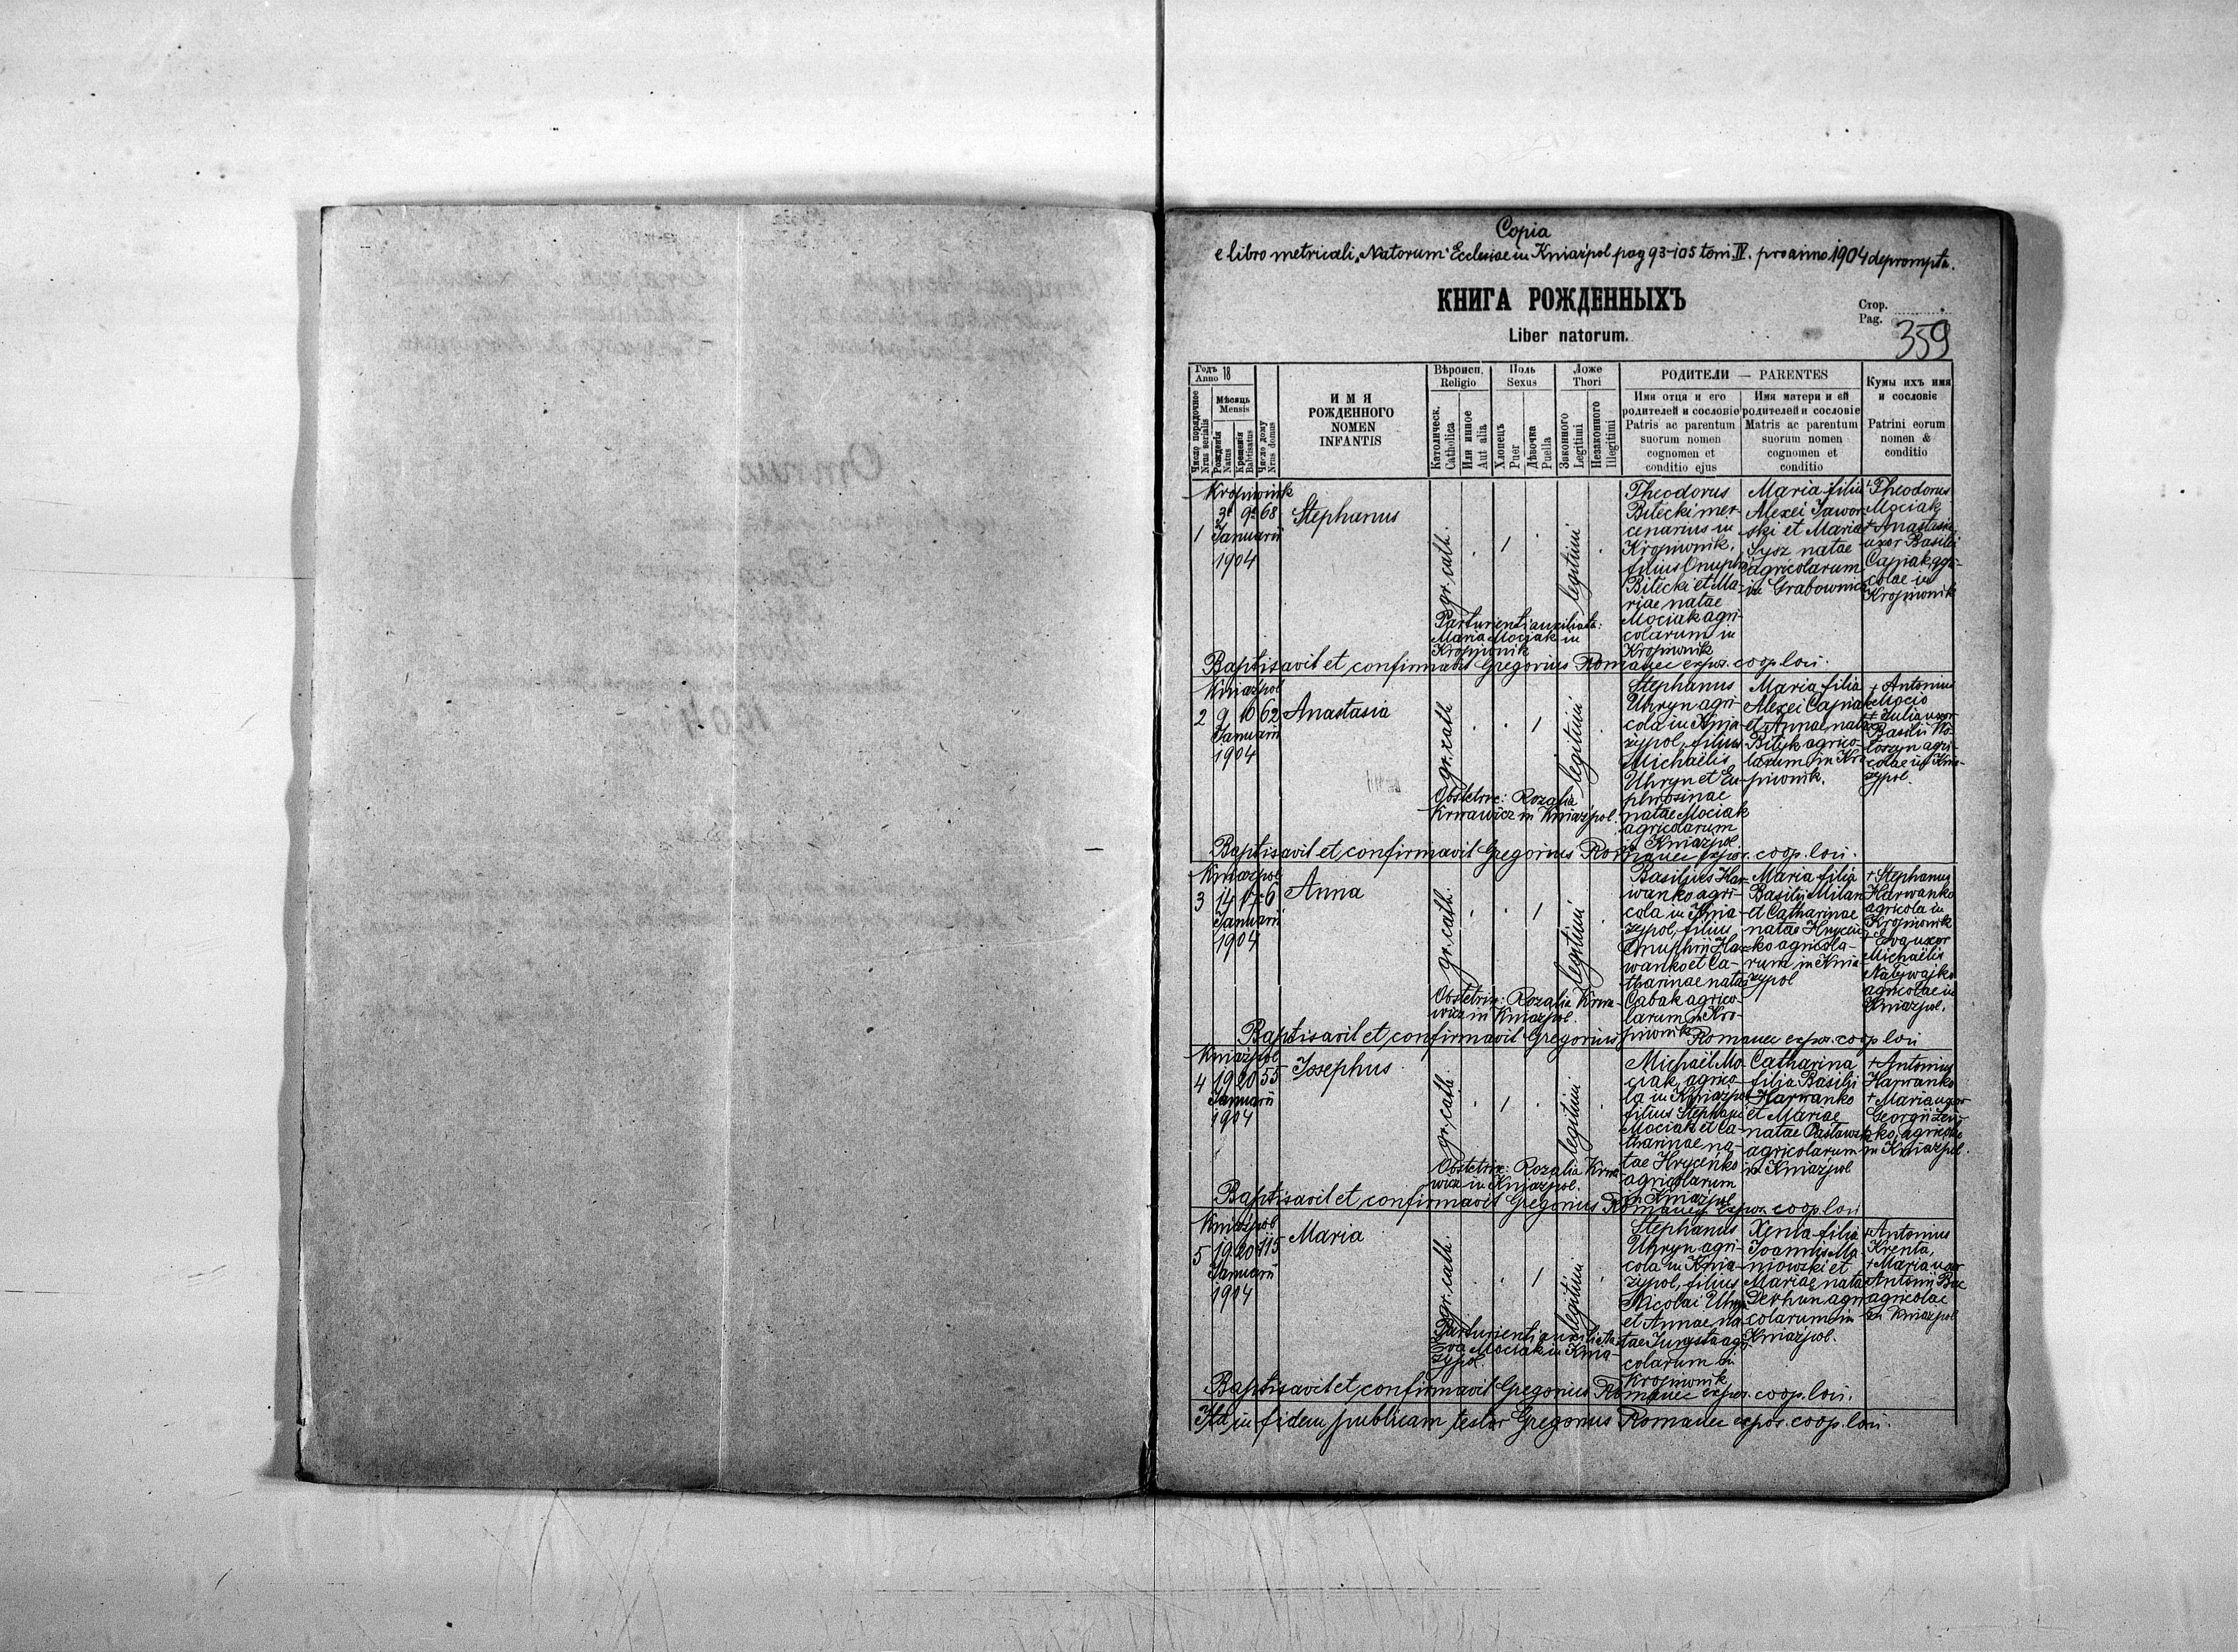 Copia
e libro metricali „Natorum“ Ecclesiae in Kniaźpol pag 93-105 tom. IV. pro anno 1904 deprompta.
КНИГА РОЖДЕННЫХЪ
Liber natorum.
Стор.
Pag.
359
Годъ
Anno 18
Число порядочное
Nrus serialis
Мѣсяць
Mensis
Рожденія
Natus
Крещенія
Babtisatus
Число дому
Nrus domus
И М Я
РОЖДЕННОГО
NOMEN
INFANTIS
Вѣроисп.
Religio
Католическ.
Catholica
Или инное
Aut alia
Поль
Sexus
Хлопець
Puer
Дѣвочка
Puella
Ложе
Thori
Законного
Legitimi
Незаконного
Illegitimi
РОДИТЕЛИ — PARENTES
Имя отца и его
родителей и сословіе
Patris ac parentum
suorum nomen
cognomen et
conditio ejus
Имя матери и ей
родителей и сословіе
Matris ac parentum
suorum nomen
cognomen et
conditio
Кумы ихъ имя
и сословіе
Patrini eorum
nomen &
conditio
Kropiwnik
1 3 9 68
Januarii
1904
Stephanus
gr. cath.
1
legitimi
Theodorus
Bilecki mer-
cenarius in
Kropiwnik,
filius Onuphr
Bilecki et Ma-
riae natae
Mociak agri-
colarum in
Kropiwnik
Maria filia
Alexei Jawor-
ski et Maria
Sysz natae
agricolarum
in Grabownica
+ Theodorus
Mociak
+ Anastasia
uxor Basilii
Capiak agri-
colae in
Kropiwnik
Parturienti auxiliata:
Maria Mociak in
Kropiwnik
Baptisavit et confirmavit Gregorius Romanec expos. coop. loci.
Kniażpol
2 9 10 62
Januarii
1904
Anastasia
gr. cath.
1
legitimi
Stephanus
Uhryn agri-
cola in Knia-
żypol, filius
Michaëlis
Uhryn et Eu-
phrosinae
natae Mociak
agricolarum
in Kniażpol
Maria filia
Alexei Capiak
et Annae natae
Bilyk agrico-
larum in Kro-
piwnik.
+ Antonius
Mocio
+ Julia uxor
Basilii Wo-
łoszyn agri-
colae in Knia-
żypol.
Obstetrix: Rozalia
Krwawicz in Kniażpol.
Baptisavit et confirmavit Gregorius Romanec expos. coop. loci.
Kniażpol
3 14 17 6
Januarii
1904
Anna
gr. cath.
1
legitimi
Basilius Har-
wanko agri-
cola in Knia-
żypol, filius
Onuphrii Har-
wanko et Ca-
tharinae natae
Cabak agrico-
larum in Kro-
piwnik
Maria filia
Basilii Milan
et Catharinae
natae Hrycen-
ko agricola-
rum in Knia-
żypol
+ Stephanus
Harwanko
agricola in
Kropiwnik
+ Eva uxor
Michaëlis
Nalywajko
agricolae in
Kniażpol.
Obstetrix: Rozalia Krwa-
wicz in Kniażpol.
Baptisavit et confirmavit Gregorius Romanec expos. coop loci
Kniażpol
4 19 20 55
Januarii
1904
Josephus
gr. cath.
1
legitimi
Michaël Mo-
ciak, agrico-
la in Kniażpol
filius Stephani
Mociak et Ca-
tharinae na-
tae Hrycenko
agricolarum
in Kniażpol
Catharina
filia Basilii
Harwanko
et Mariae
natae
agricolarum
in Kniażpol
+ Antonius
Harwanko
+ Maria uxor
Georgii
agricolae
in Kniażpol.
Obstetrix: Rozalia Krwa-
wicz in Kniażpol.
Baptisavit et confirmavit Gregorius Romanec expos. coop. loci
Kniażpol
5 19 20 115
Januarii
1904
Maria
gr. cath.
1
legitimi
Stephanus
Uhryn agri-
cola in Knia-
żypol, filius
Nicolai Uhryn
et Annae na-
tae
colarum in
Kropiwnik
Xenia filia
Joannis Ma-
niowski et
Mariae natae
Derhun agri-
colarum in
Kniażpol.
+ Antonius
Krenta,
+ Maria uxor
Antonii
agricolae
in Kniażpol
Parturienti auxiliata
Eva Mociak in Knia-
żypol.
Baptisavit et confirmavit Gregorius Romanec expos. coop. loci.
Ita in fidem publicam testor Gregorius Romanec expos. coop. loci.